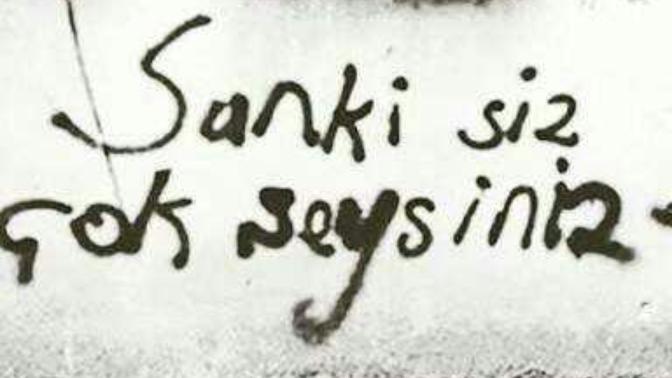 Sanki siz
çok şeysiniz